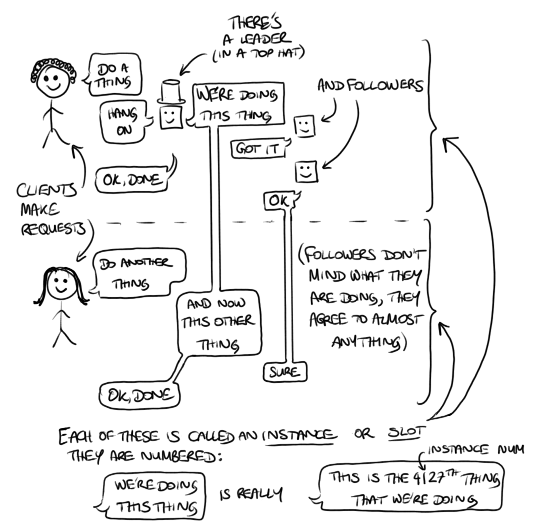 THERE'S
A LEADER
(IN A TOP HAT)
DO A
THING
HANG
ON
WE'RE DOING
THIS THING
AND FOLLOWERS
GOT IT
OK, DONE
OK
CLIENTS
MAKE
REQUESTS
DO ANOTHER
THING
(FOLLOWERS DON'T
MIND WHAT THEY
ARE DOING, THEY
AGREE TO ALMOST
ANYTHING)
AND NOW
THIS OTHER
THING
SURE
OK, DONE
EACH OF THESE IS CALLED AN INSTANCE OR SLOT
THEY ARE NUMBERED:
INSTANCE NUM
WE'RE DOING
THIS THING
IS REALLY
THIS IS THE 4127TH THING
THAT WE'RE DOING